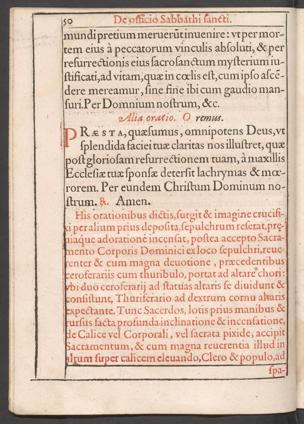 50 De officio Sabbathi sancti.
mundi pretium meruerūt inuenire: vt per mor-
tem eius à peccatorum vinculis absoluti, & per
resurrectionis eius sacrosanctum mysterium iu-
stificati, ad vitam, quæ in cœlis est, cum ipso ascē-
dere mereamur, sine fine ibi cum gaudio man-
suri. Per Dominium nostrum, &c.
Alia oratio. Oremus.
PRÆSTA, quæsumus, omnipotens Deus, vt
splendida faciei tuæ claritas nos illustret, quæ
post gloriosam resurrectionem tuam, à maxillis
Ecclesiæ tuæ sponsæ detersit lachrymas & mœ-
rorem. Per eundem Christum Dominum no-
strum. ℟. Amen.
His orationibus dictis, surgit & imagine crucifi-
xi per alium prius deposita, sepulchrum reserat, præ-
uiaque adoratione incensat, postea accepto Sacra-
mento Corporis Dominici ex loco sepulchri, reue-
renter & cum magna deuotione, præcedentibus
ceroferariis cum thuribulo, portat ad altare chori:
vbi duo ceroferarij ad statuas altaris se diuidunt &
consistunt, Thuriferario ad dextrum cornu altaris
expectante. Tunc Sacerdos, lotis prius manibus &
rursus facta profunda inclinatione & incensatione,
de Calice vel Corporali, vel sacrata pixide, accipit
Sacramentum, & cum magna reuerentia illud in
altum super calicem eleuando, Clero & populo, ad
spa-